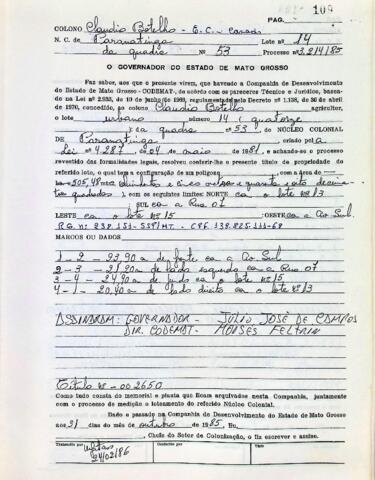 PAG. 109
COLONO Claudio Botelho - E.C. Casado
N. C. de Paranatinga Lote nº 14
da quadra Nº 53 Processo 3.214/85
O GOVERNADOR DO ESTADO DE MATO GROSSO
Faz saber, aos que o presente virem, que havendo a Companhia de Desenvolvimento
do Estado de Mato Grosso - CODEMAT-, de acordo com os pareceres Técnico e Jurídico, baseada
na Lei nº 2.933, de 13 de junho de 1969, regulamentada pelo Decreto nº 1.138, de 30 de abril
de 1970, concedido, ao colono Claudio Botelho agricultor,
o lote urbano número 14 (quatorze
) da quadra nº 53 do NÚCLEO COLONIAL
DE Paranatinga criado pela
Lei nº 4.287 de 04 de maio de 1981, e achando-se o processo
revestido das formalidades legais, resolveu conferir-lhe o presente título de propriedade do
referido lote, o qual tem a configuração de um polígono com a área de
505,48 m² (quinhentos e cinco metros e quarenta e oito decímetros
quadrados) com os seguintes limites: NORTE com o lote nº 13
SUL com a Rua 07
LESTE com o lote nº 15 OESTE com a Ao Sul.
R.G. nº 238.153-SSP/MT. - CPF. 138.825.111-68
MARCOS OU DADOS
1 - 2 - 23,90 m de frente com a Ao Sul
2 - 3 - 21,20 m de lado esquerdo com a Rua 07
3 - 4 - 24,90 m de fundo com o lote nº 15
4 - 1 - 20,40 m de lado direito com o lote nº 13
ASSINARAM: GOVERNADOR - JÚLIO JOSÉ DE CAMPOS
DIR. CODEMAT - MOISES FELTRIN
Título nº - 002650
Como tudo consta do memorial e planta que ficam arquivados nesta Companhia, juntamente
com o processo de medição e loteamento do referido Núcleo Colonial.
Dado e passado na Companhia de Desenvolvimento do Estado de Mato Grosso
aos 31 dias do mês de outubro de 1985. Eu,
, Chefe do Setor de Colonização, o fiz escrever e assino.
Transcrito por Conferido por Visto
24/02/86